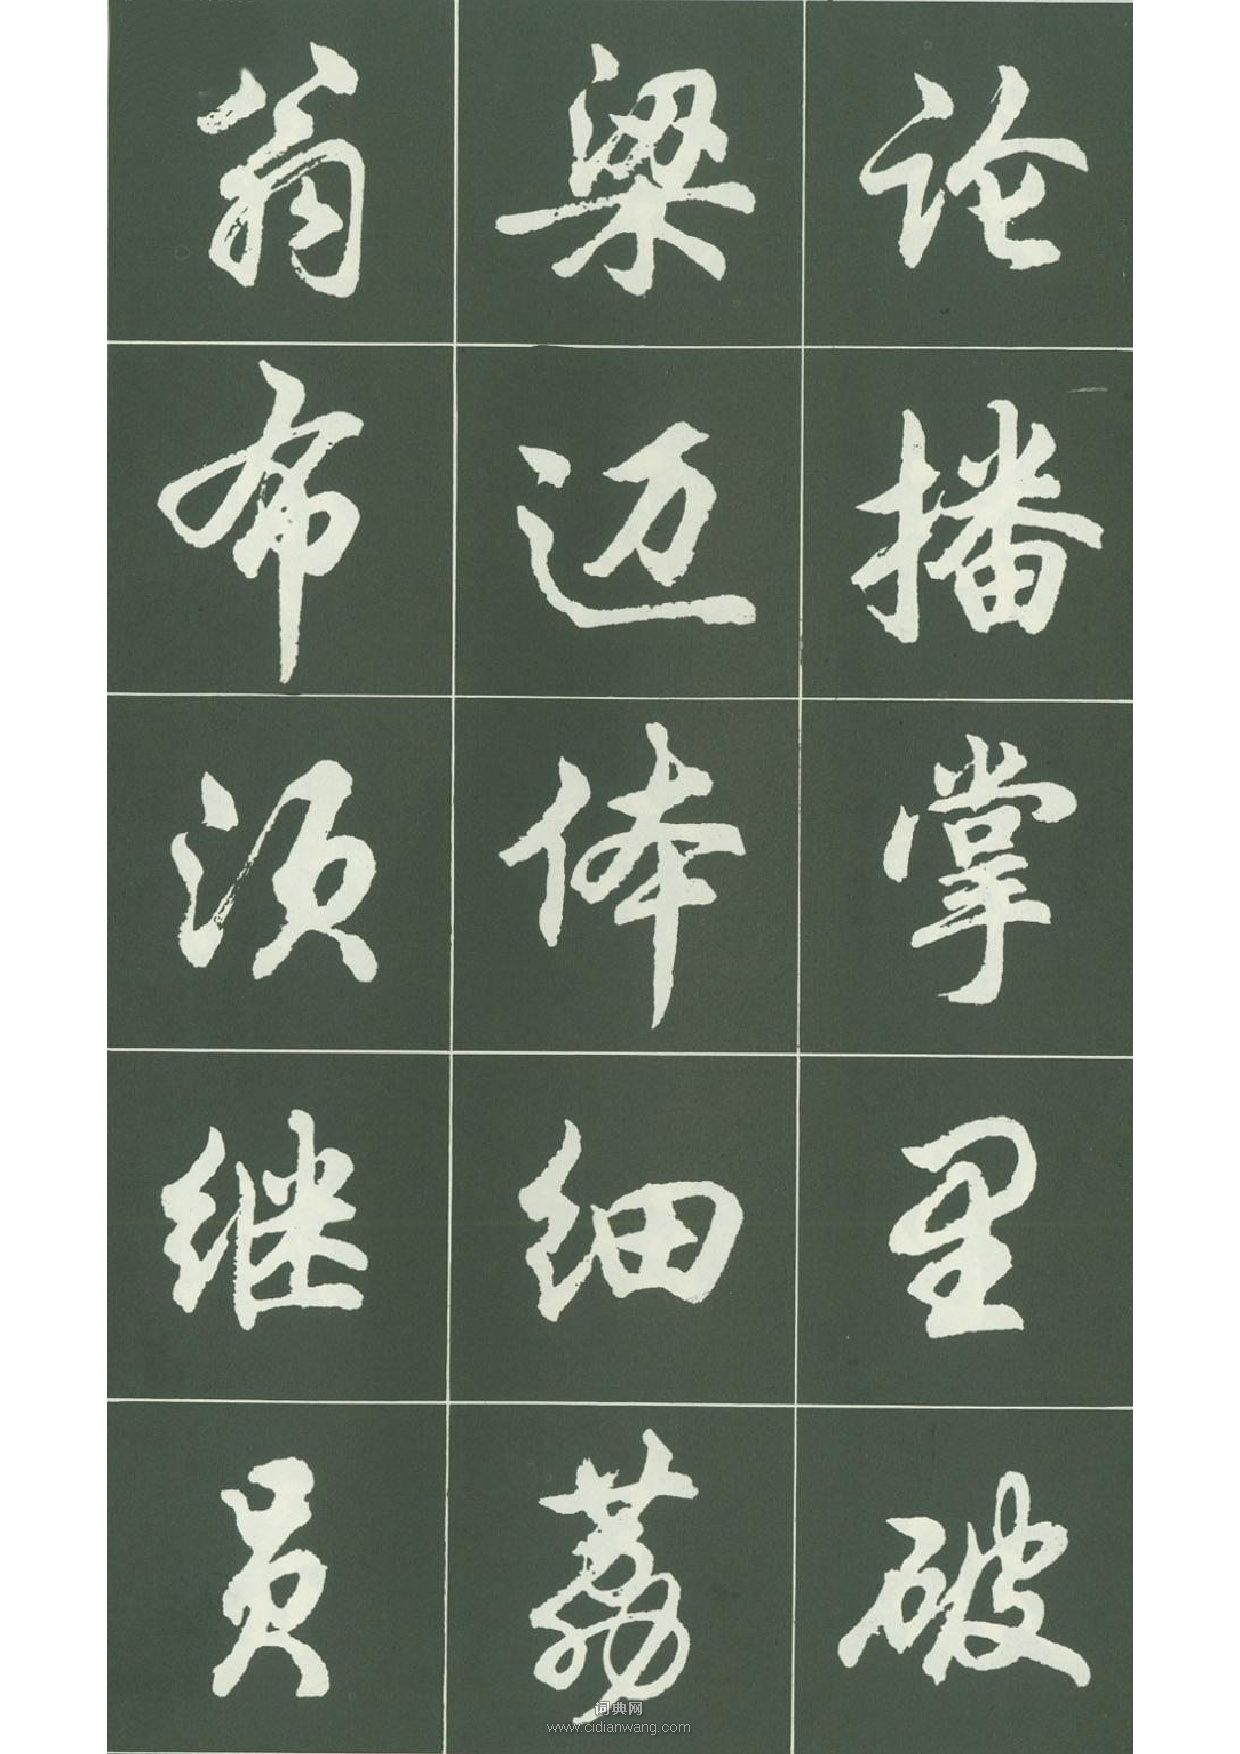 论播掌里破
梁迈体细荔
翁布须继员
词典网
www.cidianwang.com